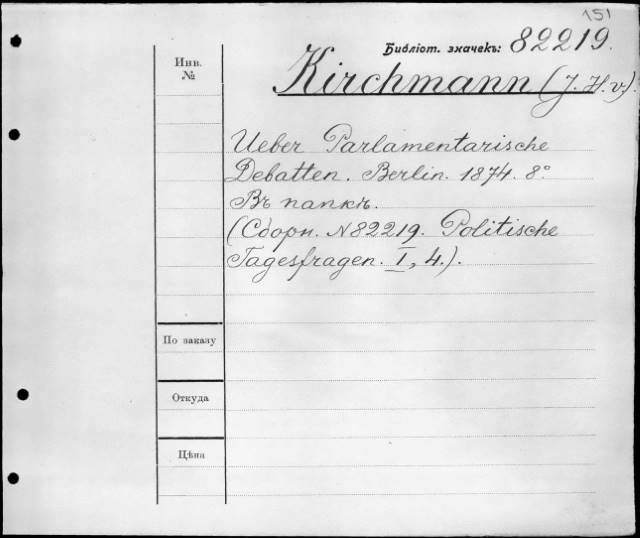 151
Библіот. значекъ: 82219.
Инв.
№
Kirchmann (J. H. v.).
Ueber Parlamentarische
Debatten. Berlin. 1874. 8°
Въ папкѣ.
(Сборн. N 82219. Politische
Tagesfragen. I, 4.).
По заказу
Откуда
Цѣна